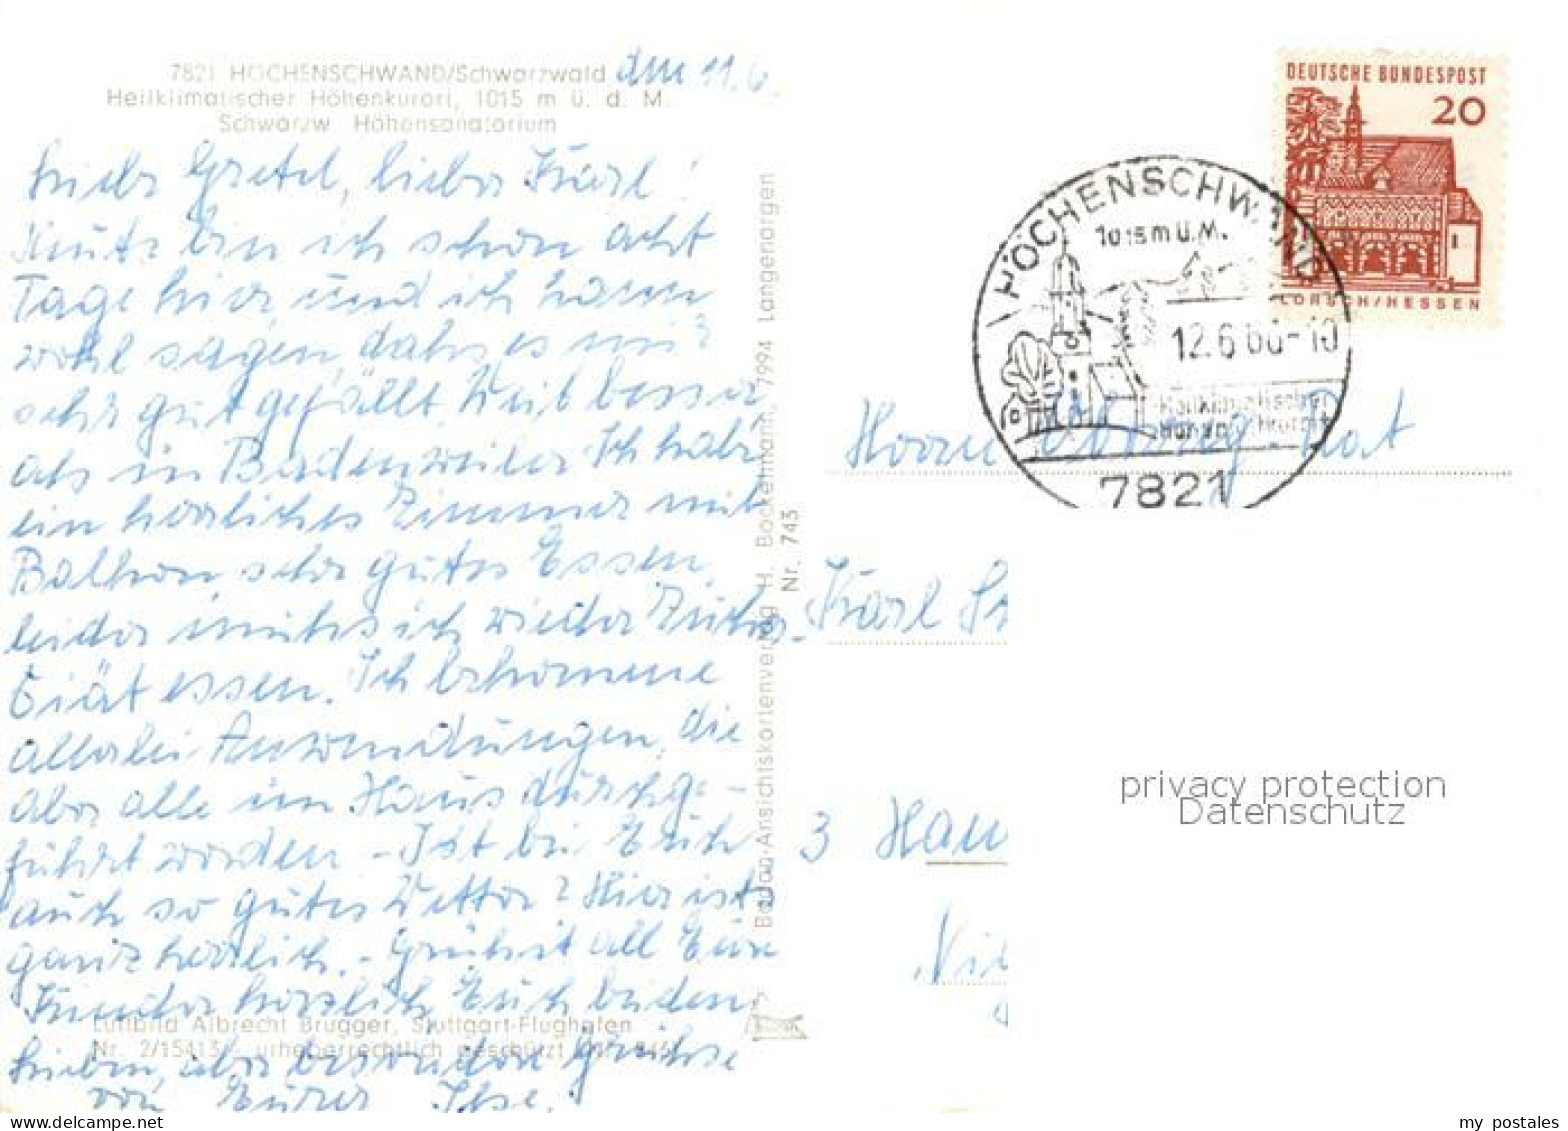 7821 HÖCHENSCHWAND/Schwarzwald den 11.6.
Heilklimatischer Höhenkurort, 1015 m ü. d. M.
Schwarzw. Höhensanatorium
Liebe Gretel, lieber Karl!
Heute bin ich schon acht
Tage hier, und ich kann
wohl sagen, daß es mir
sehr gut gefällt. Weit besser
als in Badenweiler. Ich habe
ein herrliches Zimmer mit
Balkon, sehr gutes Essen,
leider muß ich wieder Zucker-
Diät essen. Ich bekomme
allerlei Anwendungen, die
aber alle im Haus durchge-
führt werden. - Ist bei Euch
auch so gutes Wetter? Hier ist's
ganz herrlich. - Grüßt all Eure
Kinder herzlich Euch beiden
Lieben, aber besonders Grüße
von Eurer Ilse.
Luftbild Albrecht Brugger, Stuttgart-Flughafen
Nr. 2/15413 - urheberrechtlich geschützt
Baden-Ansichtskartenverlag H. Bockelmann, 7994 Langenargen
Nr. 743
DEUTSCHE BUNDESPOST
20
LORSCH/HESSEN
HÖCHENSCHWAND
1015 m ü. M.
12.6.66-10
Heilklimatischer
Höhenkurort
7821
Herrn Rat
Karl
3 Han
privacy protection
Datenschutz
my postales